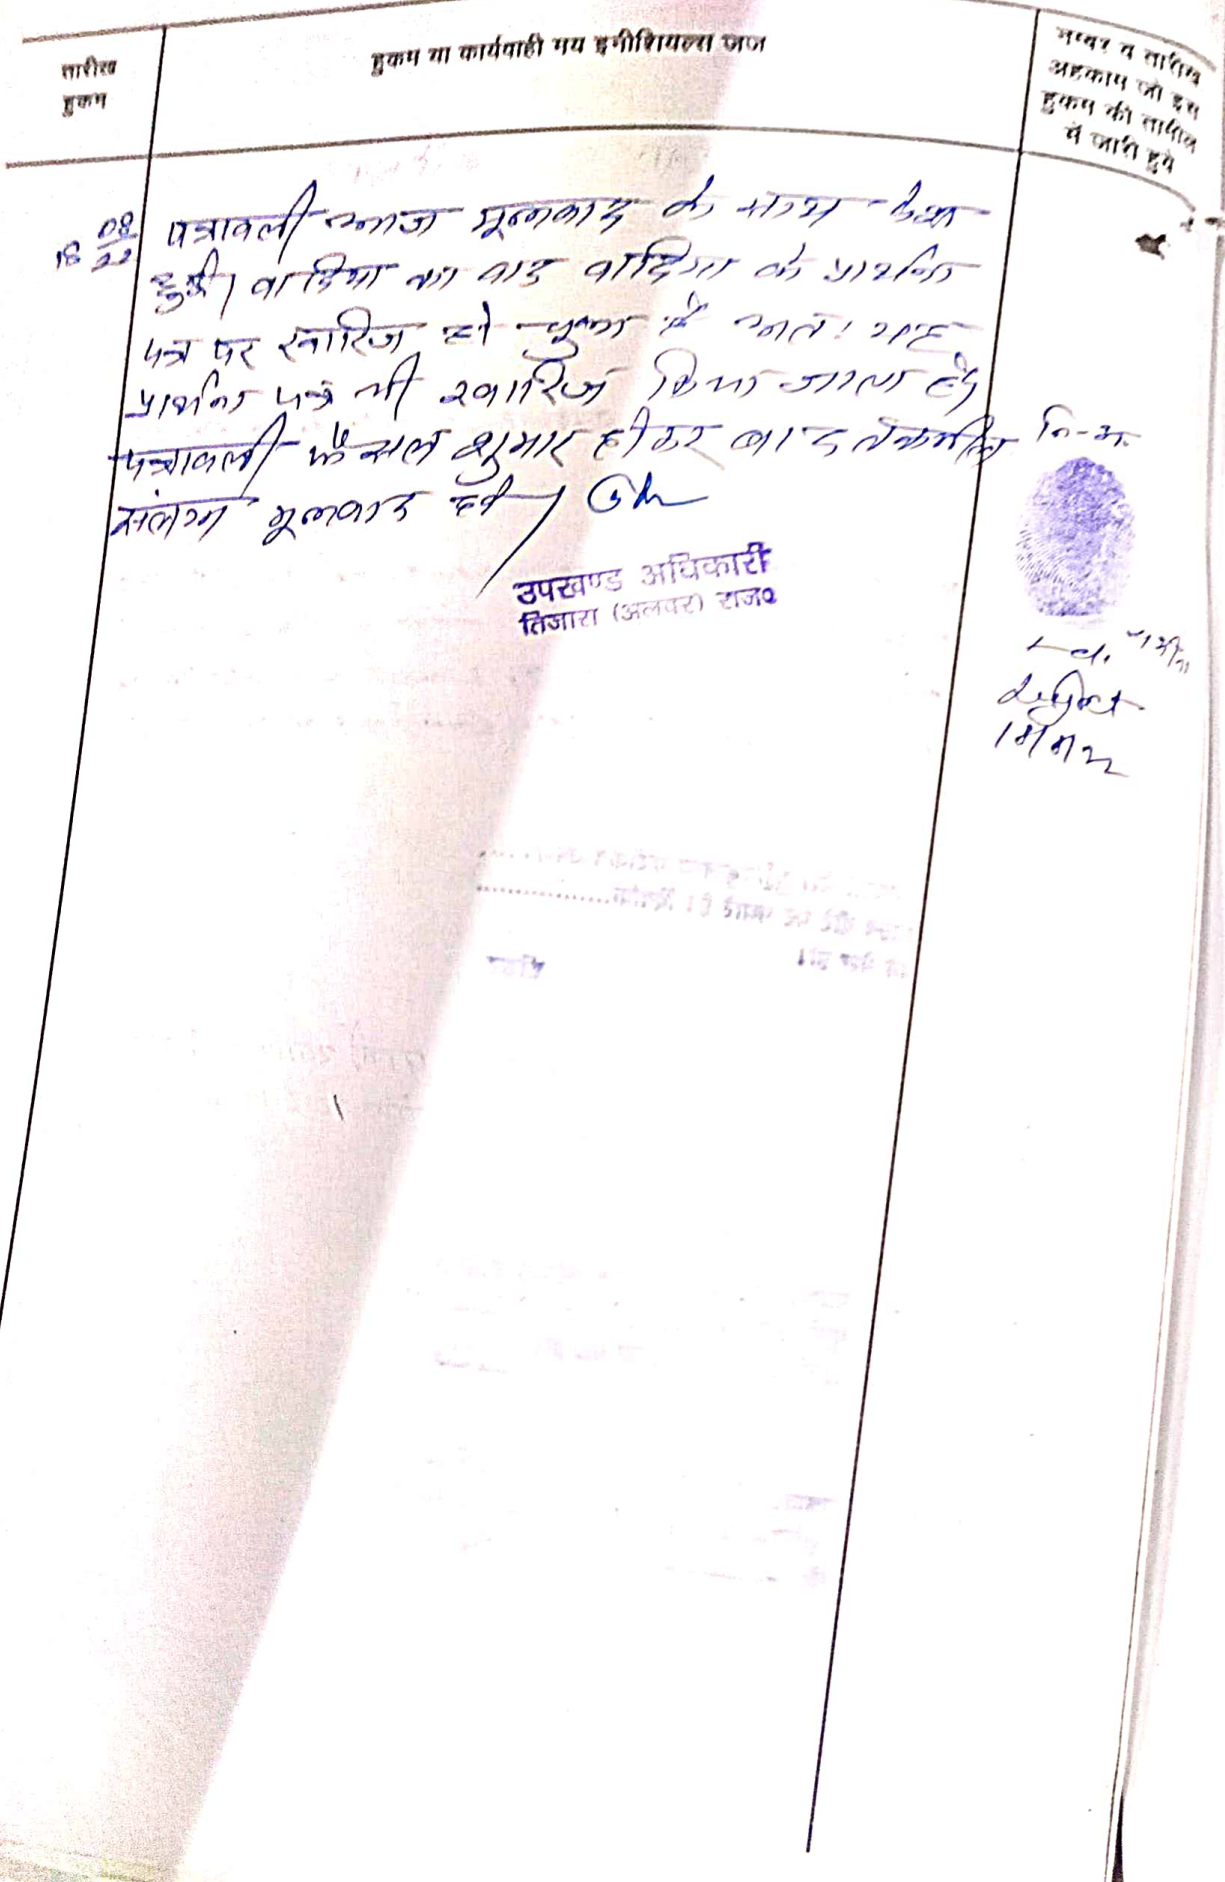 तारीख
हुकम
हुकम या कार्यवाही मय इनीशियल्स जज
नम्बर व तारीख
अहकाम जो इस
हुकम की तामील
में जारी हुये
18 08/22
पत्रावली आज मूलवाद के साथ पेश
हुई। वादिया का वाद वादिया के प्रार्थना
पत्र पर खारिज हो चुका है अतः यह
प्रार्थना पत्र भी खारिज किया जाता है।
पत्रावली फैसल शुमार होकर बाद तकमील
संलग्न मूलवाद रहे।
उपखण्ड अधिकारी
तिजारा (अलवर) राज०
नि-अ.
18/8/22